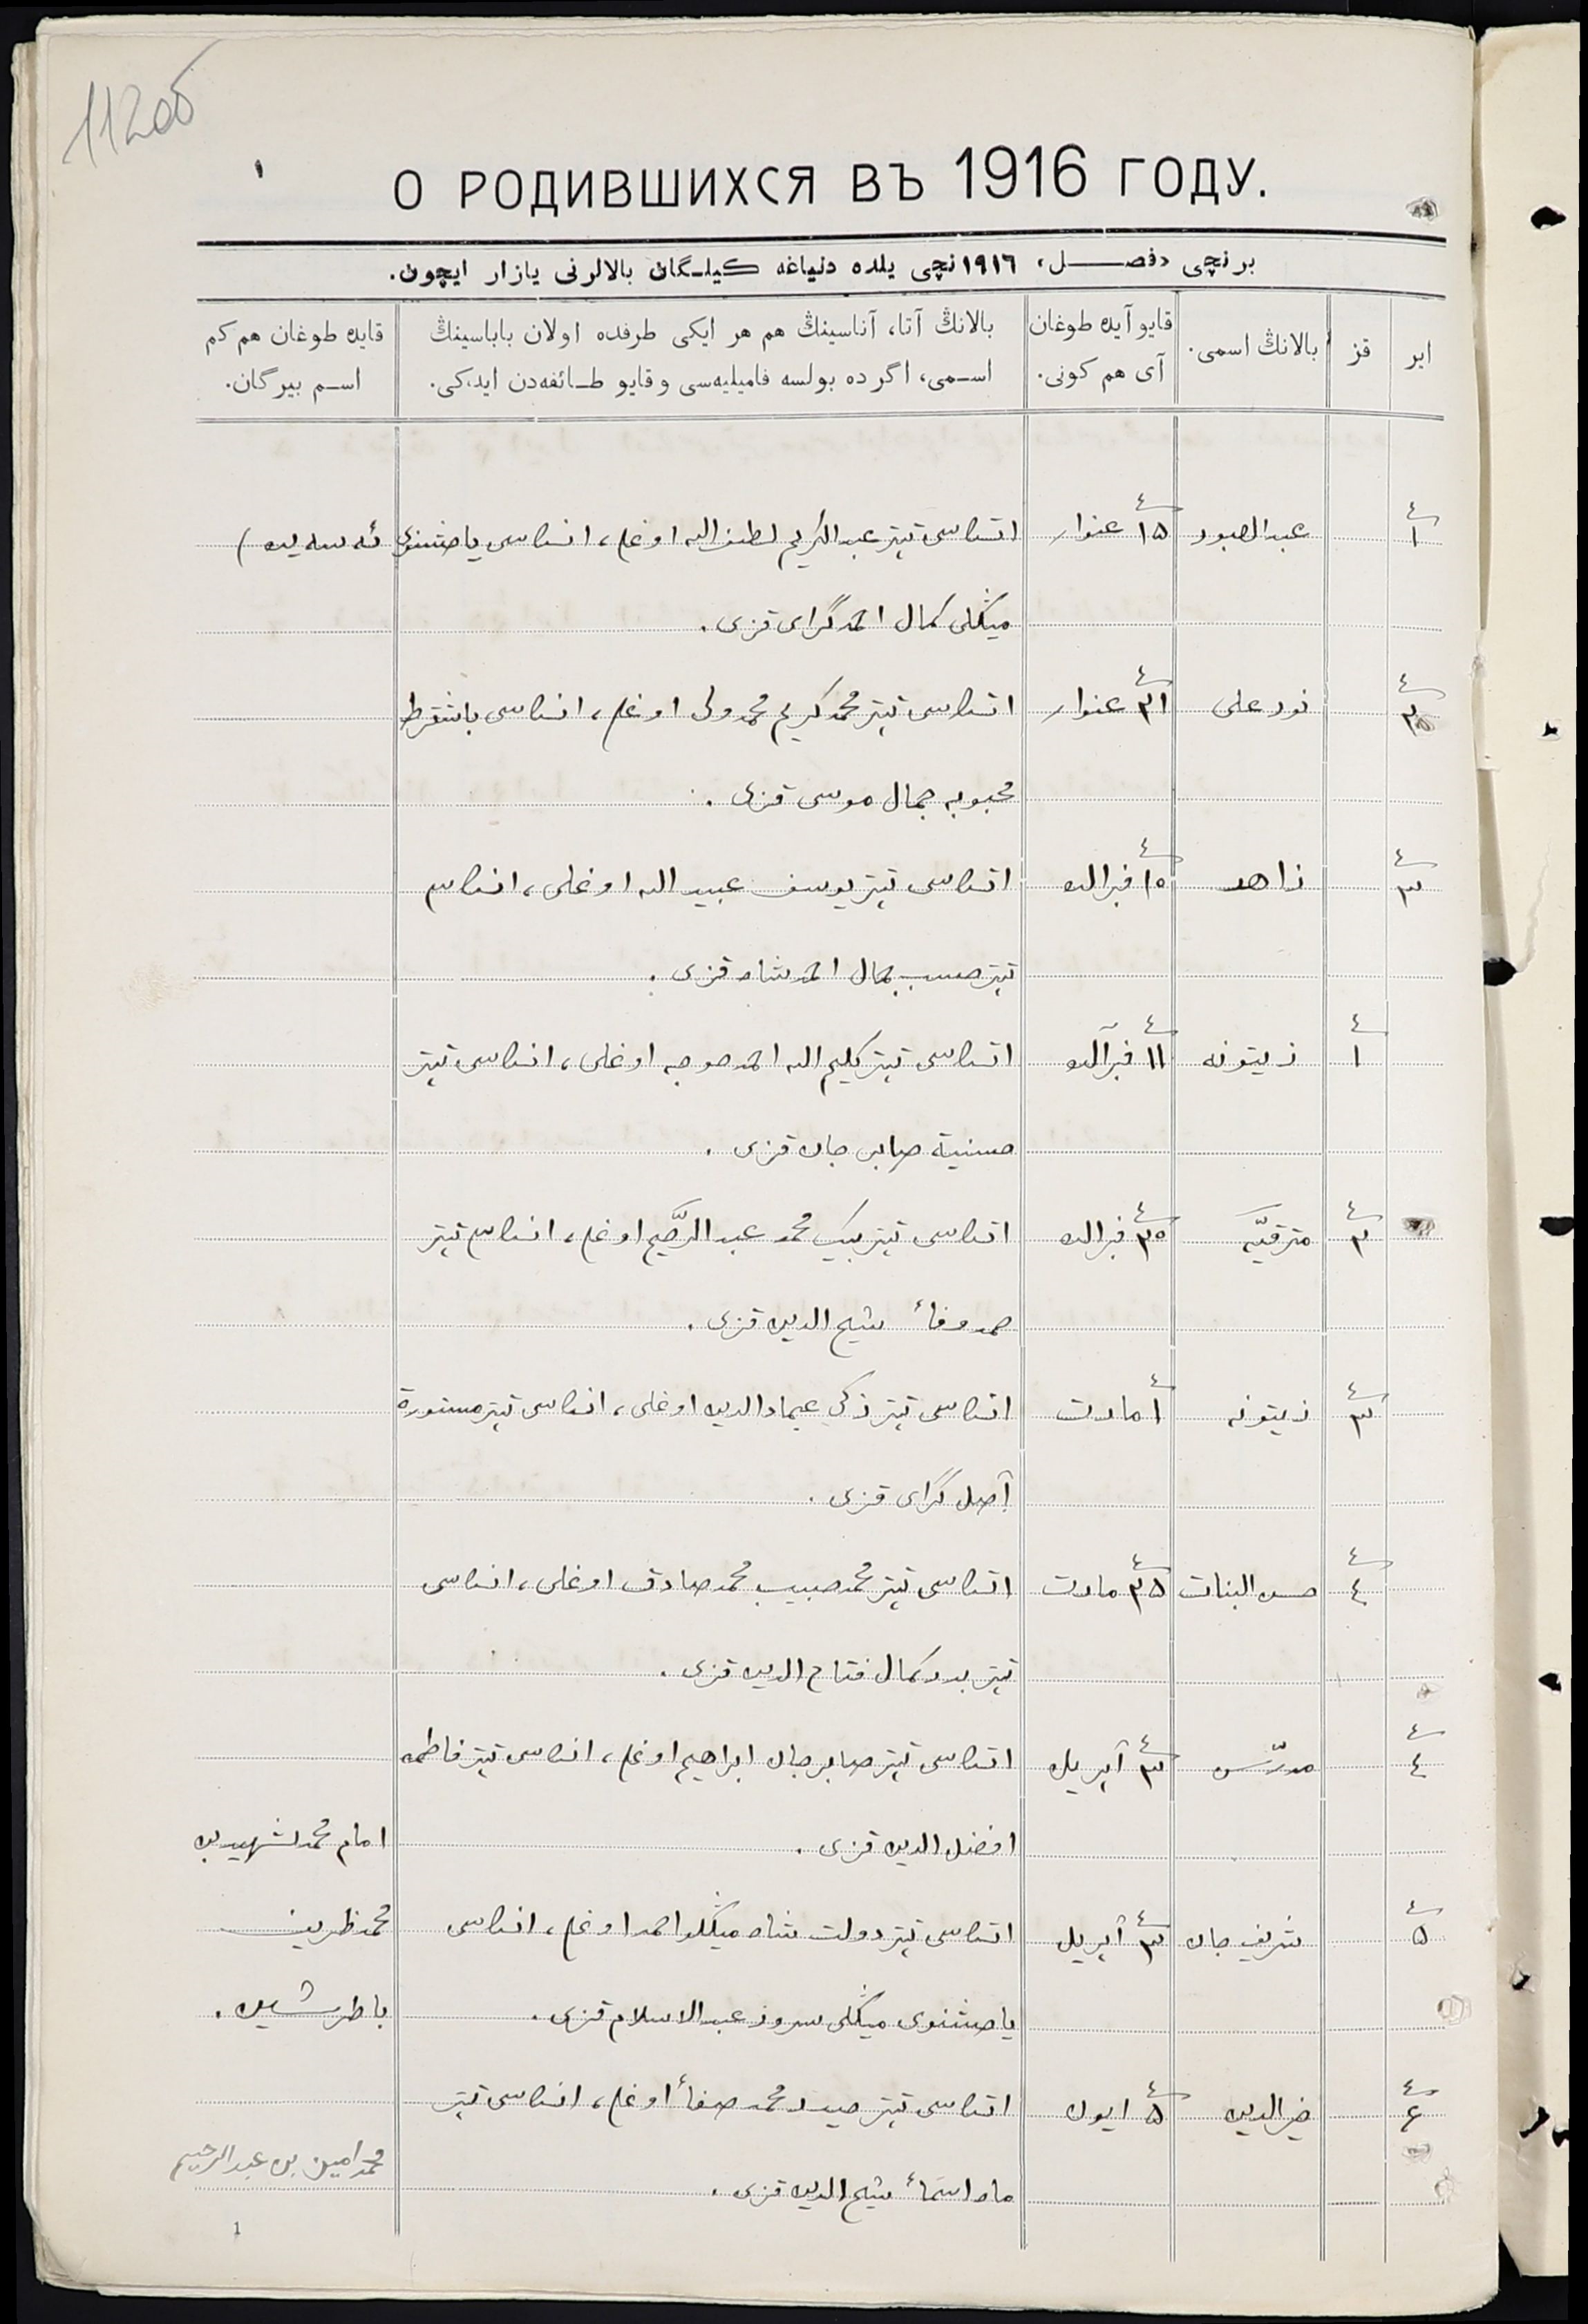 112об
О РОДИВШИХСЯ ВЪ 1916 ГОДУ.
برنچی «فصــل» ١٩١٦نچی يلده دنياغه كيلـگان بالالرنی يازار ايچون.
اير
قز
بالانڭ اسمی.
قايو آيده طوغان
آی هم كونی.
بالانڭ آتا، آناسينڭ هم هر ايكی طرفده اولان باباسينڭ
اسـمی، اگر ده بولسه فاميليه‌سی و قايو طـائفه‌دن ايدكی.
قايده طوغان هم كم
اسـم بيرگان.
١ عبدالصبور ١٥ عنوار اتاسی تپتر عبدالكريم لطف الله اوغلی، اناسی
ميڭلی كمال احمدگرای قزی.
٢ نورعلی ٢١ عنوار اتاسی تپتر محمدكريم محمدولی اوغلی، اناسی باشقرط
محبوبه جمال موسی قزی.
٣ زاهد ١٠ فبرال اتاسی تپتر يوسف عبيدالله اوغلی، اناسی
تپتر حبيب جمال احمدشاه قزی.
١ زيتونه ١١ فبرال اتاسی تپتر كليم الله احمد اوغلی، اناسی تپتر
حسنية صابرجان قزی.
٢ مترقيّه ٢٥ فبرال اتاسی تپتر بيك محمد عبدالرّحيم اوغلی، اناسی تپتر
شيخ الدين قزی.
٣ زيتونه ١ مارت اتاسی تپتر ذكی عمادالدين اوغلی، اناسی تپتر مستورة
آصل گرای قزی.
٤ حسن البنات ٢٥ مارت اتاسی تپتر محمدحبيب محمدصادق اوغلی، اناسی
تپتر بدركمال فتاح الدين قزی.
٤ مدرّس ٣ آپريل اتاسی تپتر صابرجان ابراهيم اوغلی، اناسی تپتر فاطمه
افضل الدين قزی. امام محمدشهيد بن
٥ شريف جان ٣ آپريل اتاسی تپتر دولت شاه ميڭلواحمد اوغلی، اناسی محمدظريف
ميڭلی سروز عبدالاسلام قزی. باطرشين.
٦ خيرالدين ٥ ايون اتاسی تپتر محمدصفأ اوغلی، اناسی تپتر
ماه اسمأ شيخ الدين قزی. محمدامين بن عبدالرحيم
1